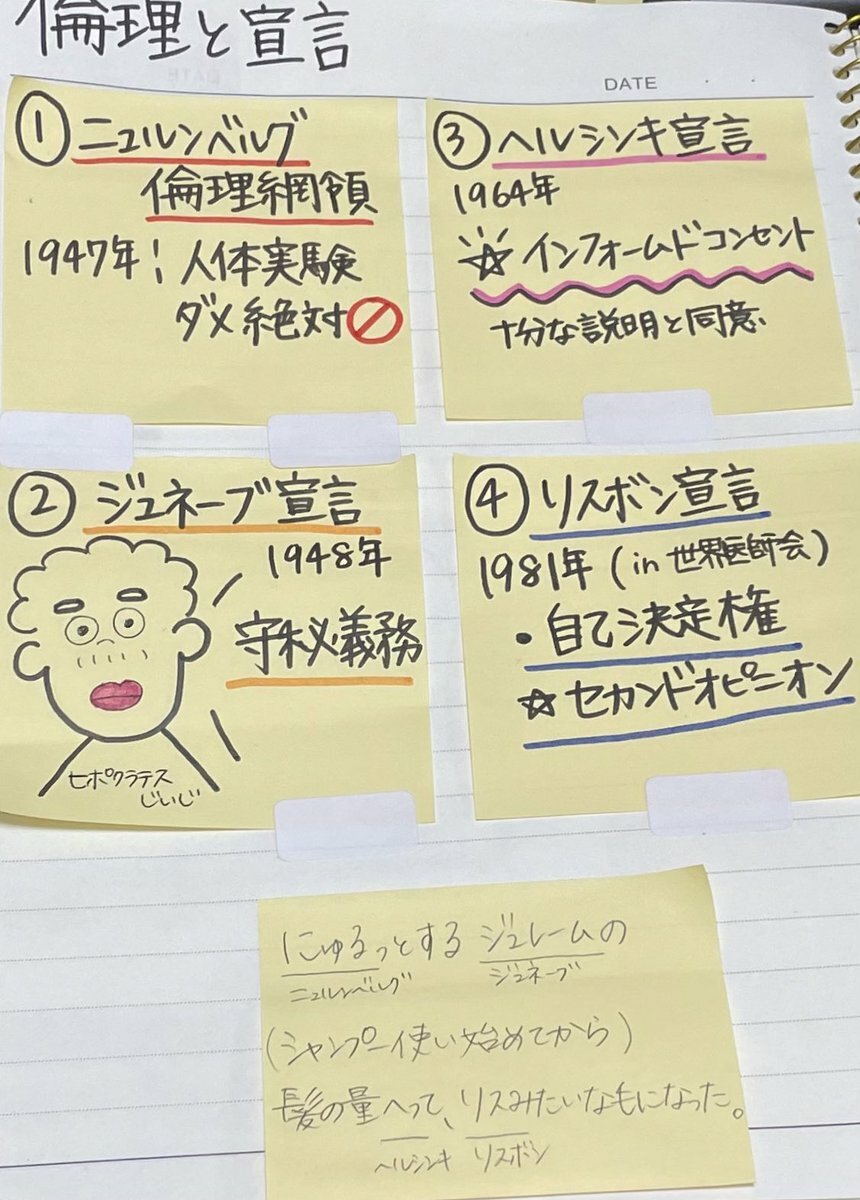 倫理と宣言
DATE
① ニュルンベルグ
倫理綱領
1947年! 人体実験
ダメ絶対
② ジュネーブ宣言
1948年
守秘義務
ヒポクラテス
じいじ
③ ヘルシンキ宣言
1964年
☆ インフォームドコンセント
十分な説明と同意
④ リスボン宣言
1981年 (in 世界医師会)
・自己決定権
☆ セカンドオピニオン
にゅるっとする ジュレームの
ニュルンベルグ ジュネーブ
(シャンプー使い始めてから)
髪の量へって、リスみたいな毛になった。
ヘルシンキ リスボン